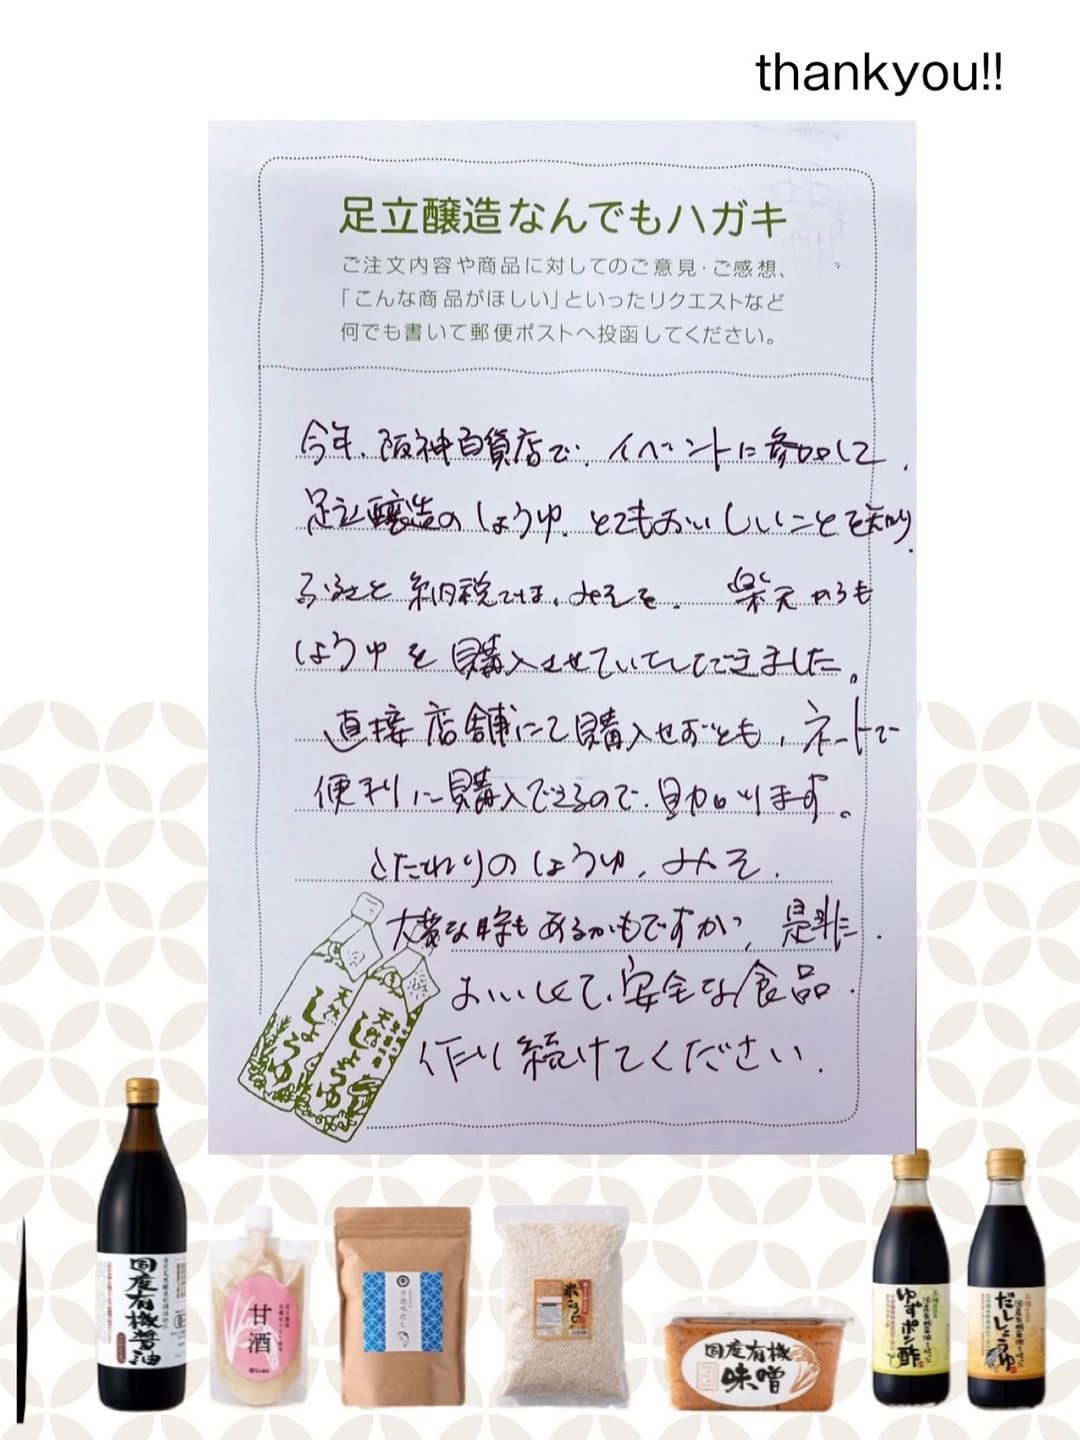 thankyou!!
足立醸造なんでもハガキ
ご注文内容や商品に対してのご意見・ご感想、
「こんな商品がほしい」といったリクエストなど
何でも書いて郵便ポストへ投函してください。
今年、阪神百貨店で、イベントに参加して、
足立醸造のしょうゆ、とてもおいしいことを知り、
ふるさと納税では、みそを、楽天からも
しょうゆを購入させていただきました。
直接店舗にて購入せずとも、ネットで
便利に購入できるので、助かります。
こだわりのしょうゆ、みそ、
大変な時もあるかもですが、是非に、
おいしくて、安全な食品、
作り続けてください。
天然
しょうゆ
天然
しょうゆ
国産有機醤油
甘酒
米こうじ
国産有機
味噌
ゆずポン酢
だししょうゆ